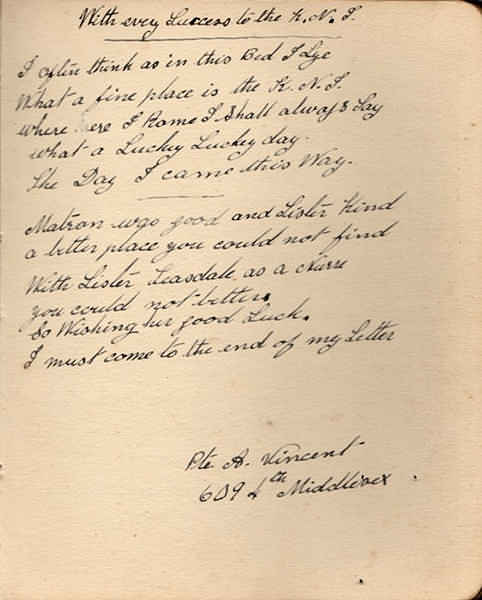 With every Success to the K.N.I.
I often think as in this Bed I Lye
What a fine place is the K.N.I.
where ere I Rome I Shall always Say
what a Lucky Lucky day.
The Day I came this Way.
Matron was good and Sister Kind
a better place you could not find
With Sister Teasdale as a Nurse
you could not better.
So Wishing her good Luck.
I must come to the end of my Letter
Pte A. Vincent
609 4th Middlesex